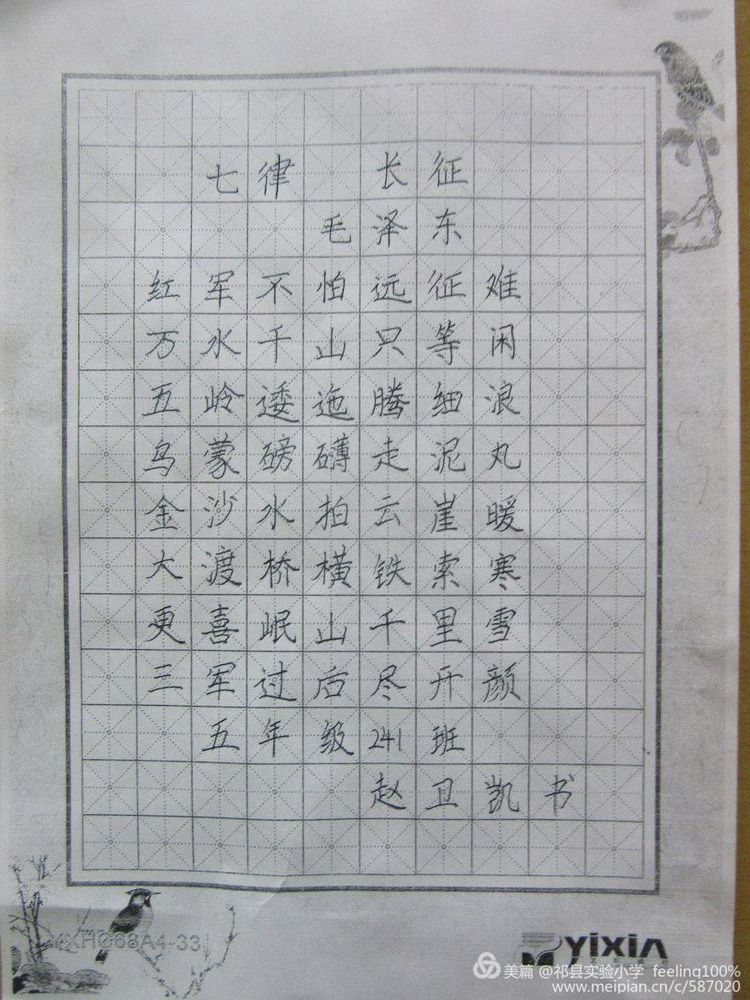 七律 长征
毛泽东
红军不怕远征难
万水千山只等闲
五岭逶迤腾细浪
乌蒙磅礴走泥丸
金沙水拍云崖暖
大渡桥横铁索寒
更喜岷山千里雪
三军过后尽开颜
五年级241班
赵卫凯书
YXHG68A4-33
yixin
美篇 @祁县实验小学 feeling100%
www.meipian.cn/c/587020